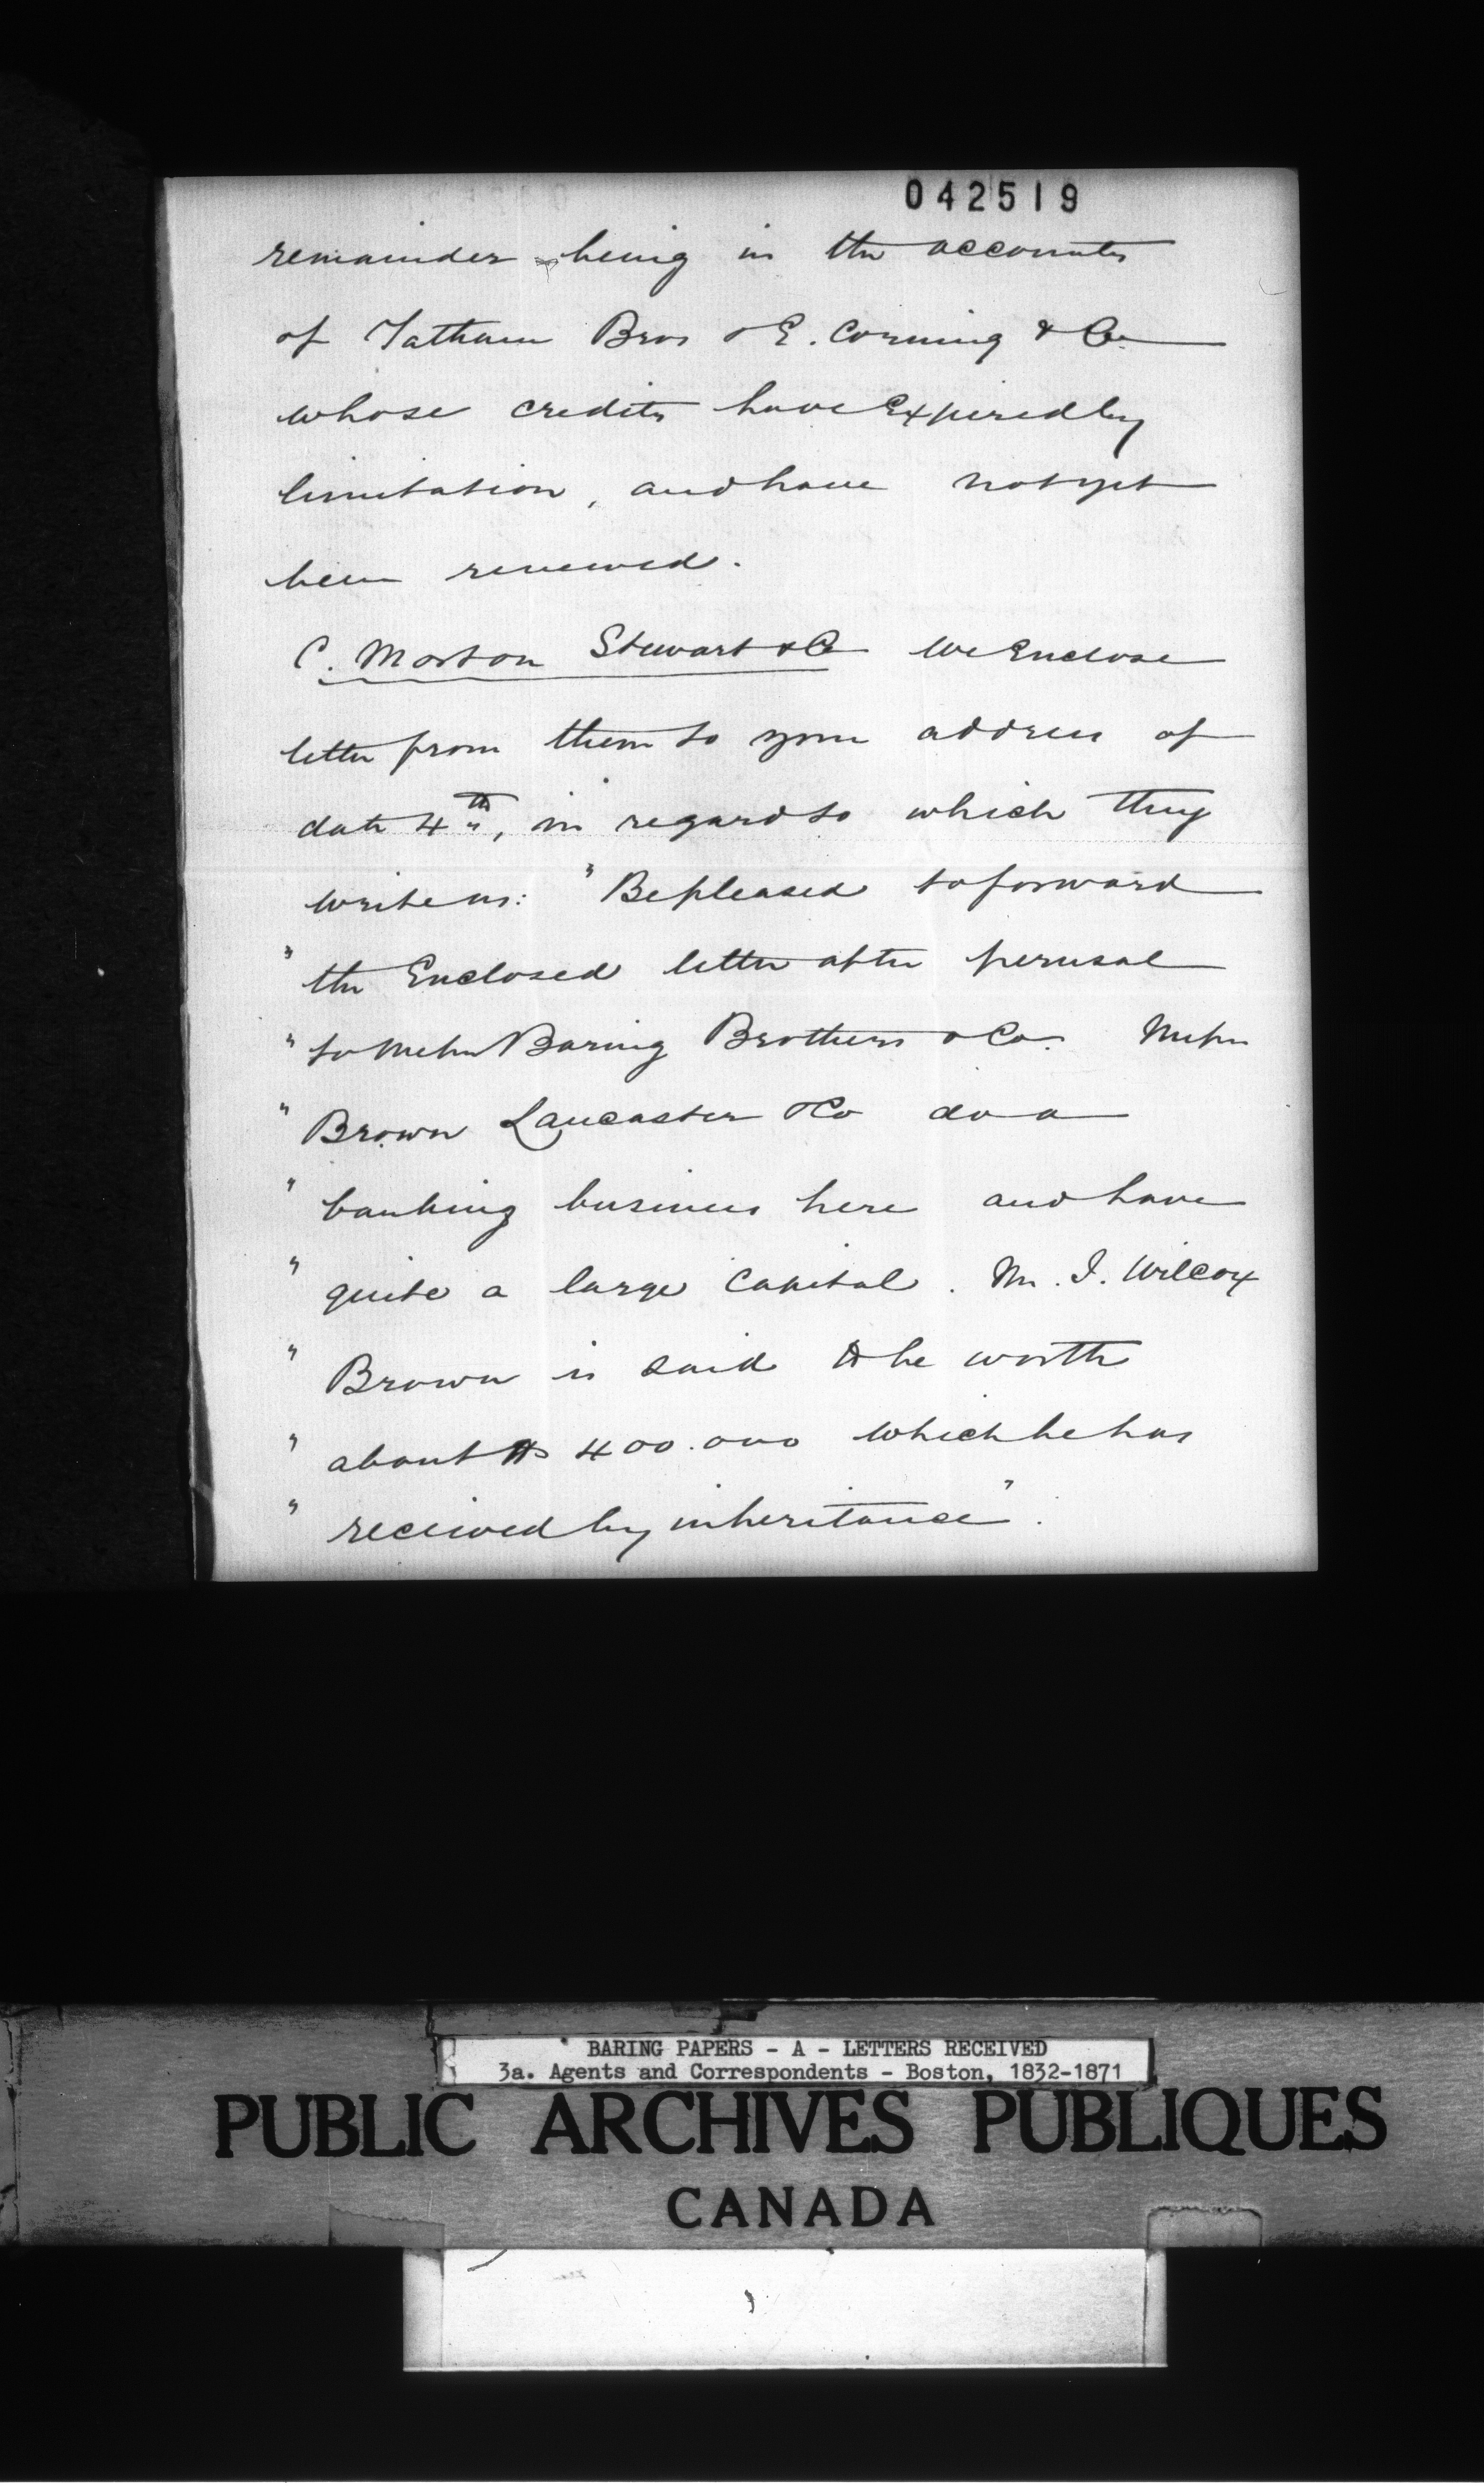 042519
remainder being in the accounts
of Tatham Bros & E. Corning & Co
whose credits have Expired by
limitation, and have not yet
been renewed.
C. Morton Stewart & Co We Enclose
letter from them to your address of
date 4th, in regard to which they
write us: "Be pleased to forward
" the Enclosed letter after perusal
" to Messrs Baring Brothers & Co. Messrs
" Brown Lancaster & Co do a
" banking business here and have
" quite a large Capital. Mr. J. Wilcox
" Brown is said to be worth
" about $ 400.000 which he has
" received by inheritance".
BARING PAPERS - A - LETTERS RECEIVED
3a. Agents and Correspondents - Boston, 1832-1871
PUBLIC ARCHIVES PUBLIQUES
CANADA